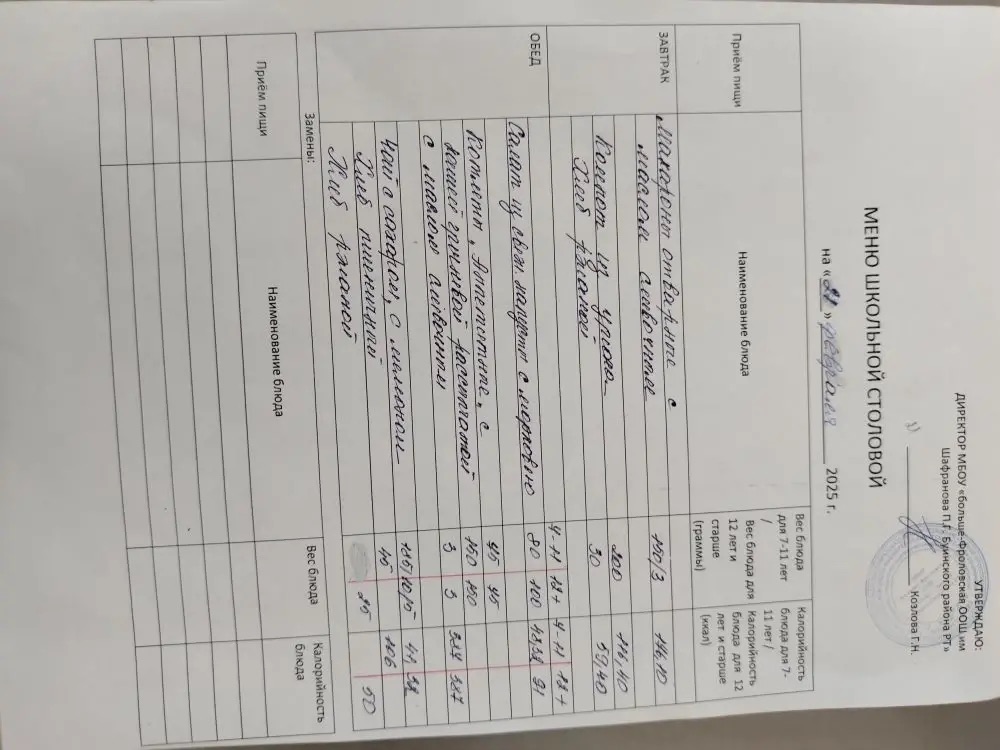 УТВЕРЖДАЮ:
ДИРЕКТОР МБОУ «Больше-Фроловская ООШ им
Шафранова П.Г. Буинского района РТ»
Козлова Г.Н.
МЕНЮ ШКОЛЬНОЙ СТОЛОВОЙ
на «21» февраля 2025 г.
Приём пищи
Наименование блюда
Вес блюда
для 7-11 лет
/
Вес блюда для
12 лет и
старше
(граммы)
Калорийность
блюда для 7-
11 лет /
Калорийность
блюда для 12
лет и старше
(ккал)
ЗАВТРАК
Макароны отварные с 150/3 146,10
маслом сливочное
200 114,40
Компот из 30 59,40
Хлеб ржаной
7-11 12+ 7-11 12+
ОБЕД
Салат из свеж. капусты с морковью 80 100 91
45 45
Котлеты, с 150 150
кашей гречневой рассыпчатой 3 3 387 387
с маслом сливочным
Чай с сахаром, с 185/10/5 41,32
Хлеб пшеничный 45 106
Хлеб ржаной 25 50
Замены:
Приём пищи
Наименование блюда
Вес блюда
Калорийность
блюда